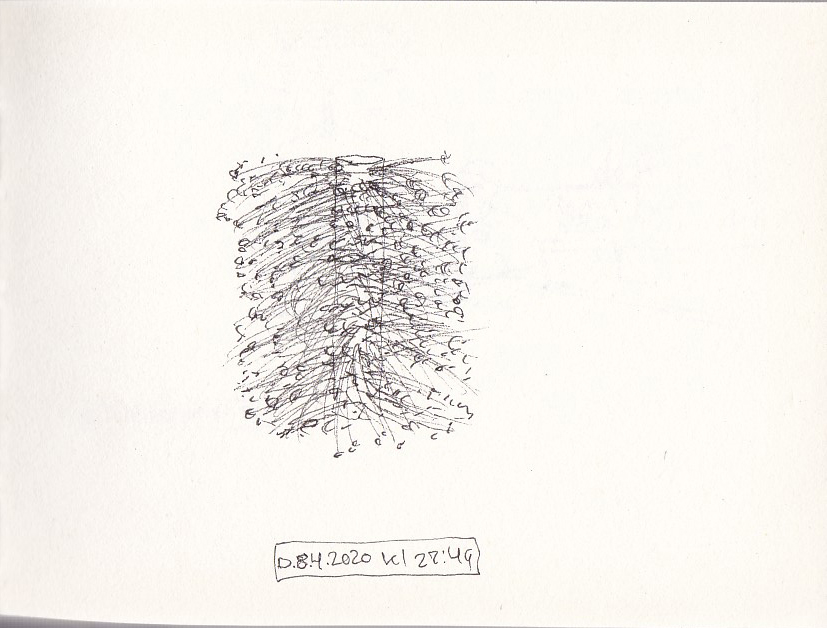 D.8.4.2020 kl 22:49